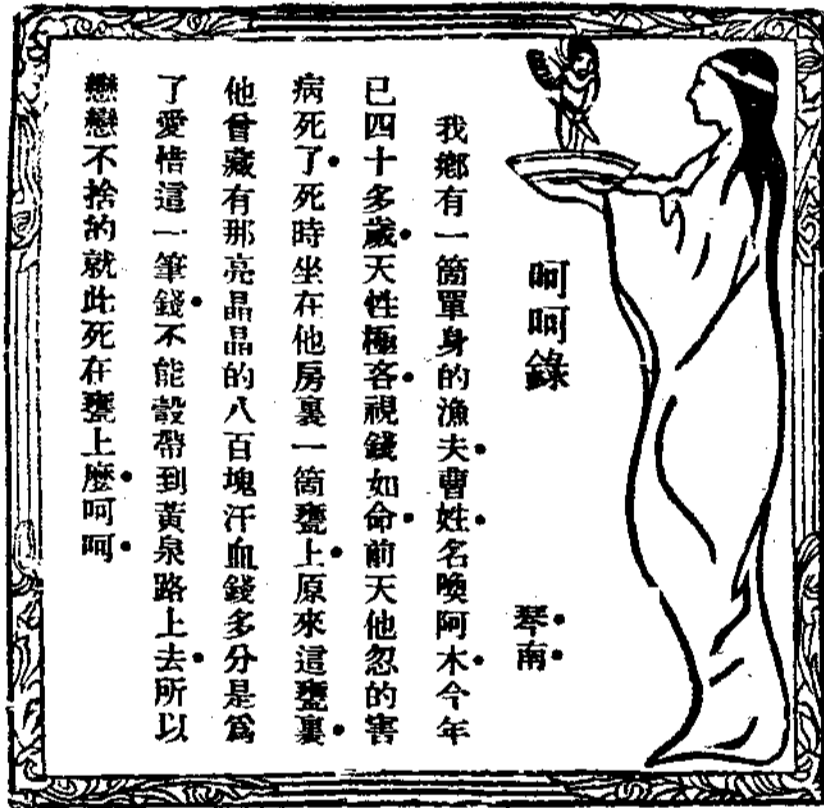 呵呵錄
琴南
我鄕有一箇單身的漁夫曹姓名喚阿木今年
已四十多歲天性極吝視錢如命前天他忽的害
病死了死時坐在他房裏一箇甕上原來這甕裏
他曾藏有那亮晶晶的八百塊汗血錢多分是爲
了愛惜這一筆錢不能彀帶到黃泉路上去所以
戀戀不捨的就此死在甕上麽呵呵